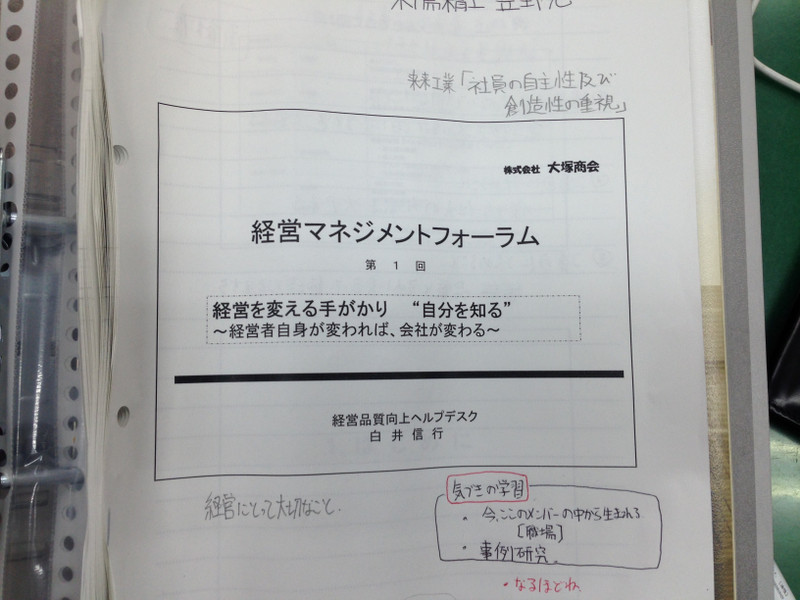 未来工業「社員の自主性及び
創造性の重視」
株式会社 大塚商会
経営マネジメントフォーラム
第 1 回
経営を変える手がかり “自分を知る”
～経営者自身が変われば、会社が変わる～
経営品質向上ヘルプデスク
白 井 信 行
経営にとって大切なこと.
気づきの学習
・今、ここのメンバーの中から生まれる
[職場]
・事例研究
・なるほどね